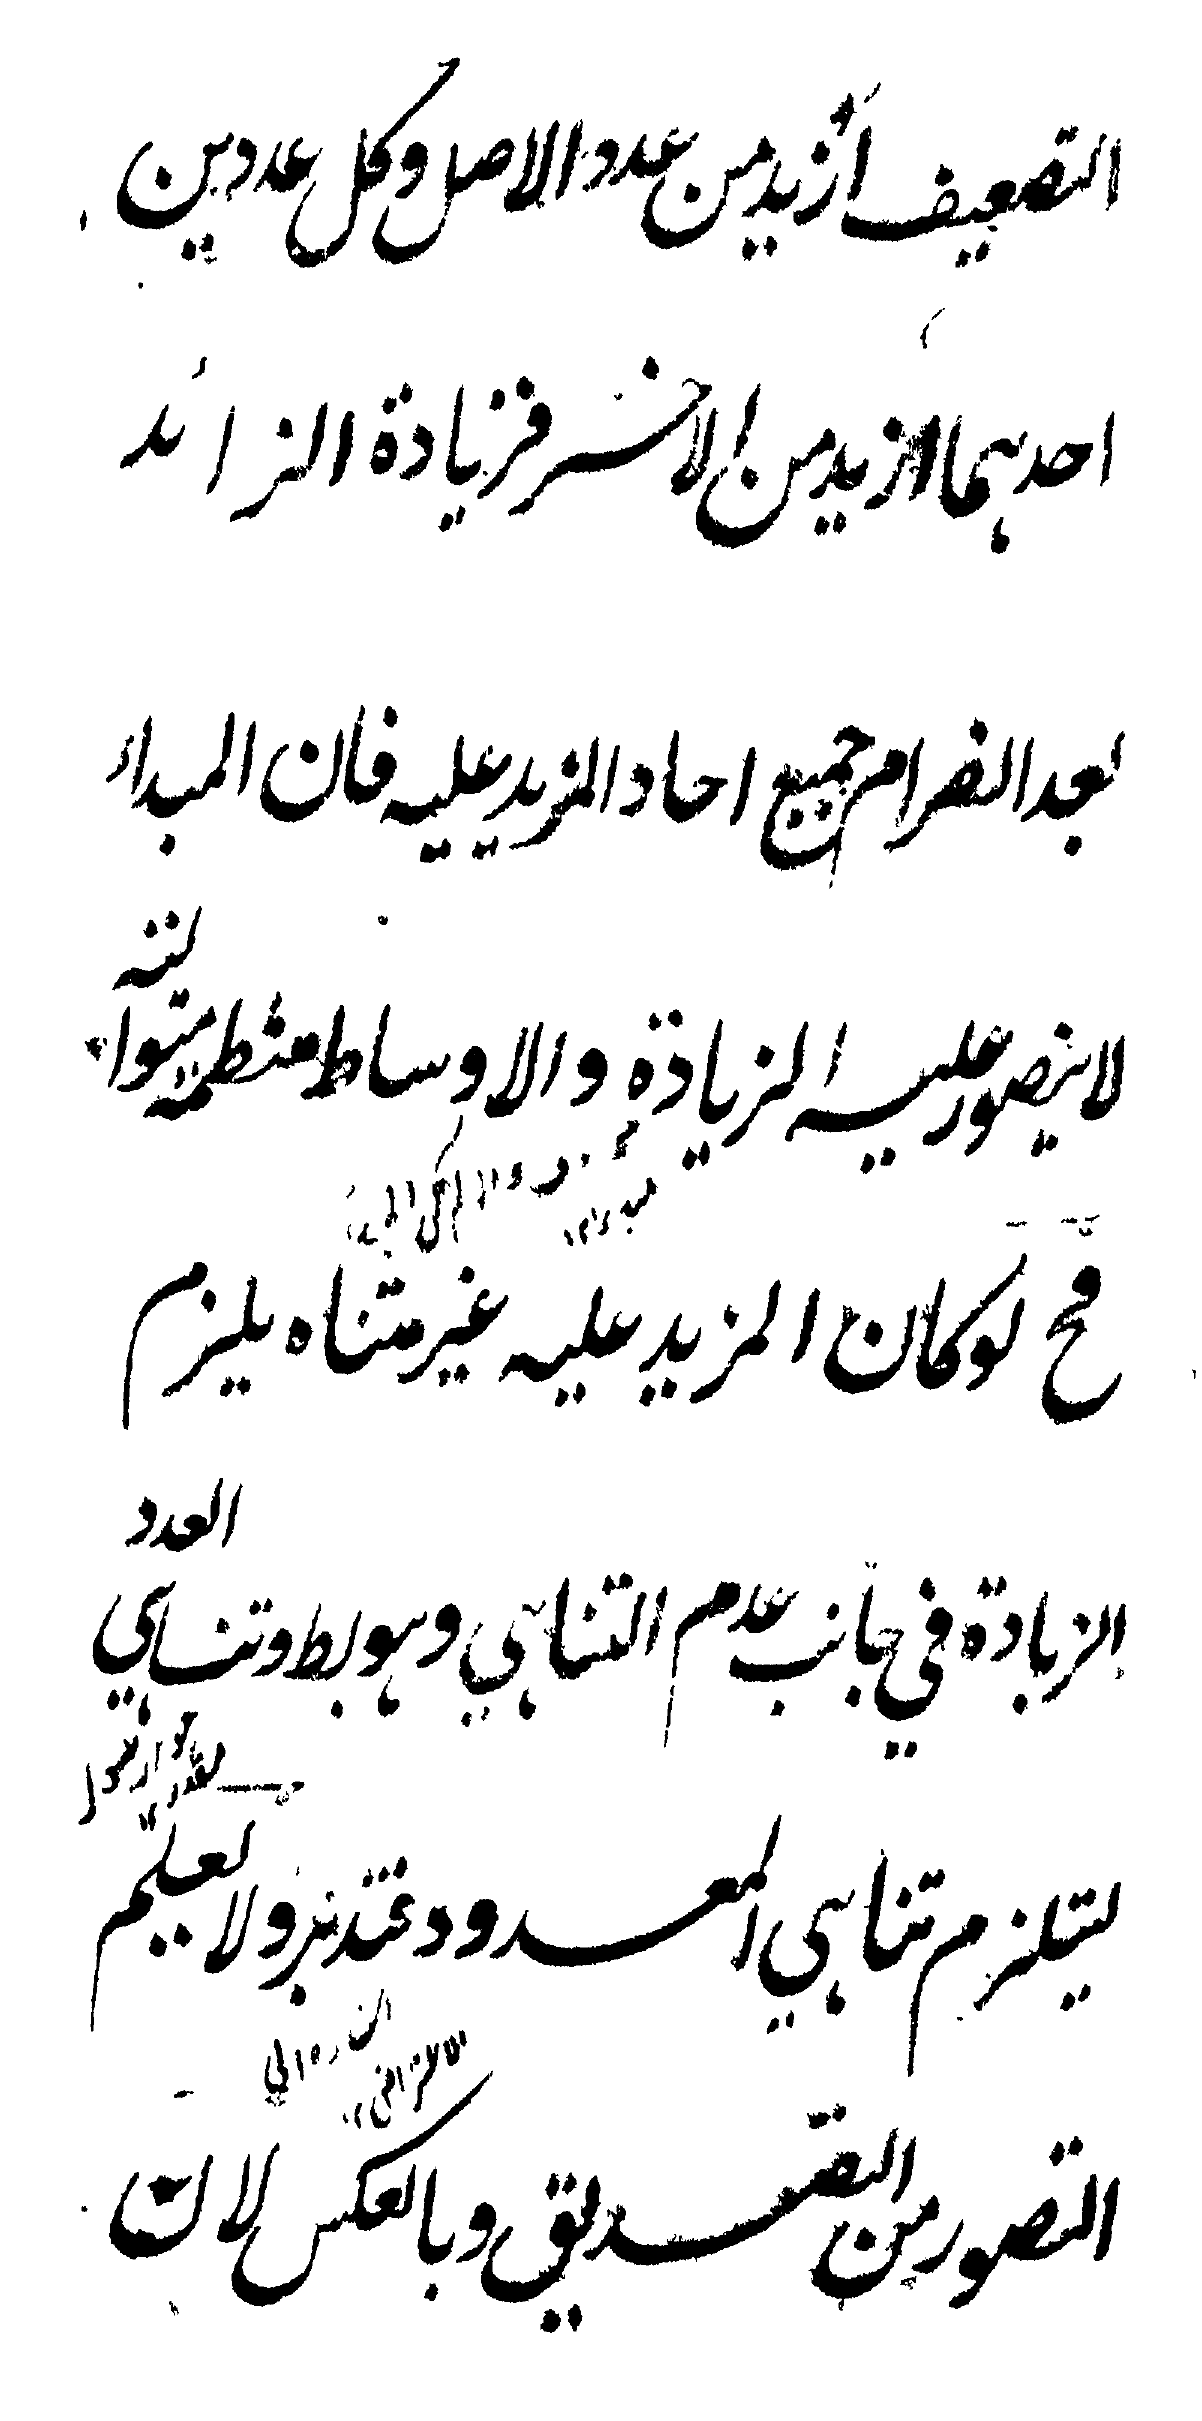 التضعيف أزيد من عدد الاصل وكل عددين
احدهما ازيد من الاخر فزيادة الزائد
بعد انصرام جميع احاد المزيد عليه فان المبدأ
لا يتصور عليه الزيادة والاوساط منتظمة متوالية
فح لو كان المزيد عليه غير متناه يلزم
الزيادة في جانب عدم التناهي وهو بط وتناهي العدد
يستلزم تناهي المعدود فتدبر ولا يعلم
التصور من التصديق وبالعكس لان